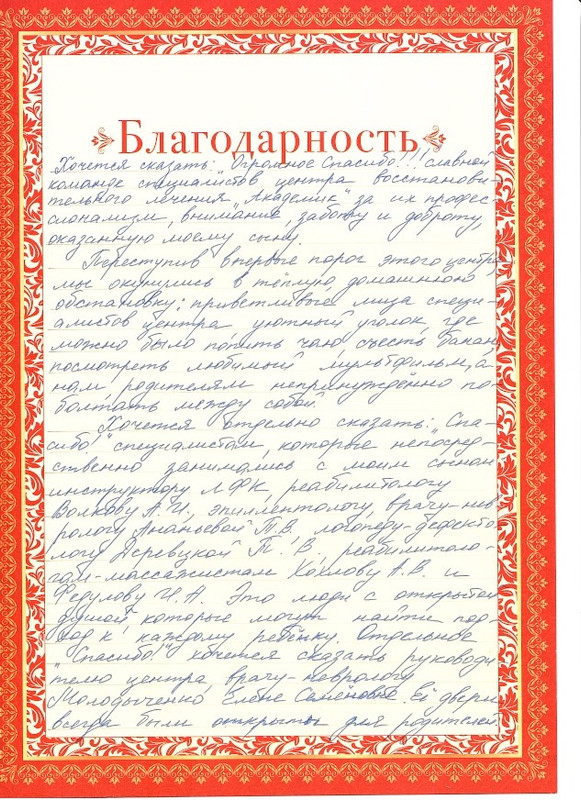 Благодарность
Хочется сказать: „Огромное Спасибо!!!" славной
команде специалистов центра восстанови-
тельного лечения „Академик" за их профес-
сионализм, внимание, заботу и доброту,
оказанную моему сыну.
Переступив впервые порог этого центра
мы окунулись в тёплую, домашнюю
обстановку: приветливые лица специ-
алистов центра, уютный уголок, где
можно было попить чаю, съесть банан,
посмотреть любимый мультфильм, а
нам, родителям непринуждённо по-
болтать между собой.
Хочется отдельно сказать: „Спа-
сибо!" специалистам, которые непосред-
ственно занимались с моим сыном
инструктору ЛФК, реабилитологу
Волкову А.И., эпилептологу, врачу-нев-
рологу Ананьевой Т.В., логопеду-дефекто-
логу Деревицкой Т.В., реабилитоло-
гам-массажистам Козлову А.В. и
Федулову И.А. Это люди с открытой
душой, которые могут найти под-
ход к каждому ребёнку. Отдельное
„Спасибо!" хочется сказать руководи
телю центра, врачу-неврологу
Молодыченко Елене Семёновне. Её двери
всегда были открыты для родителей